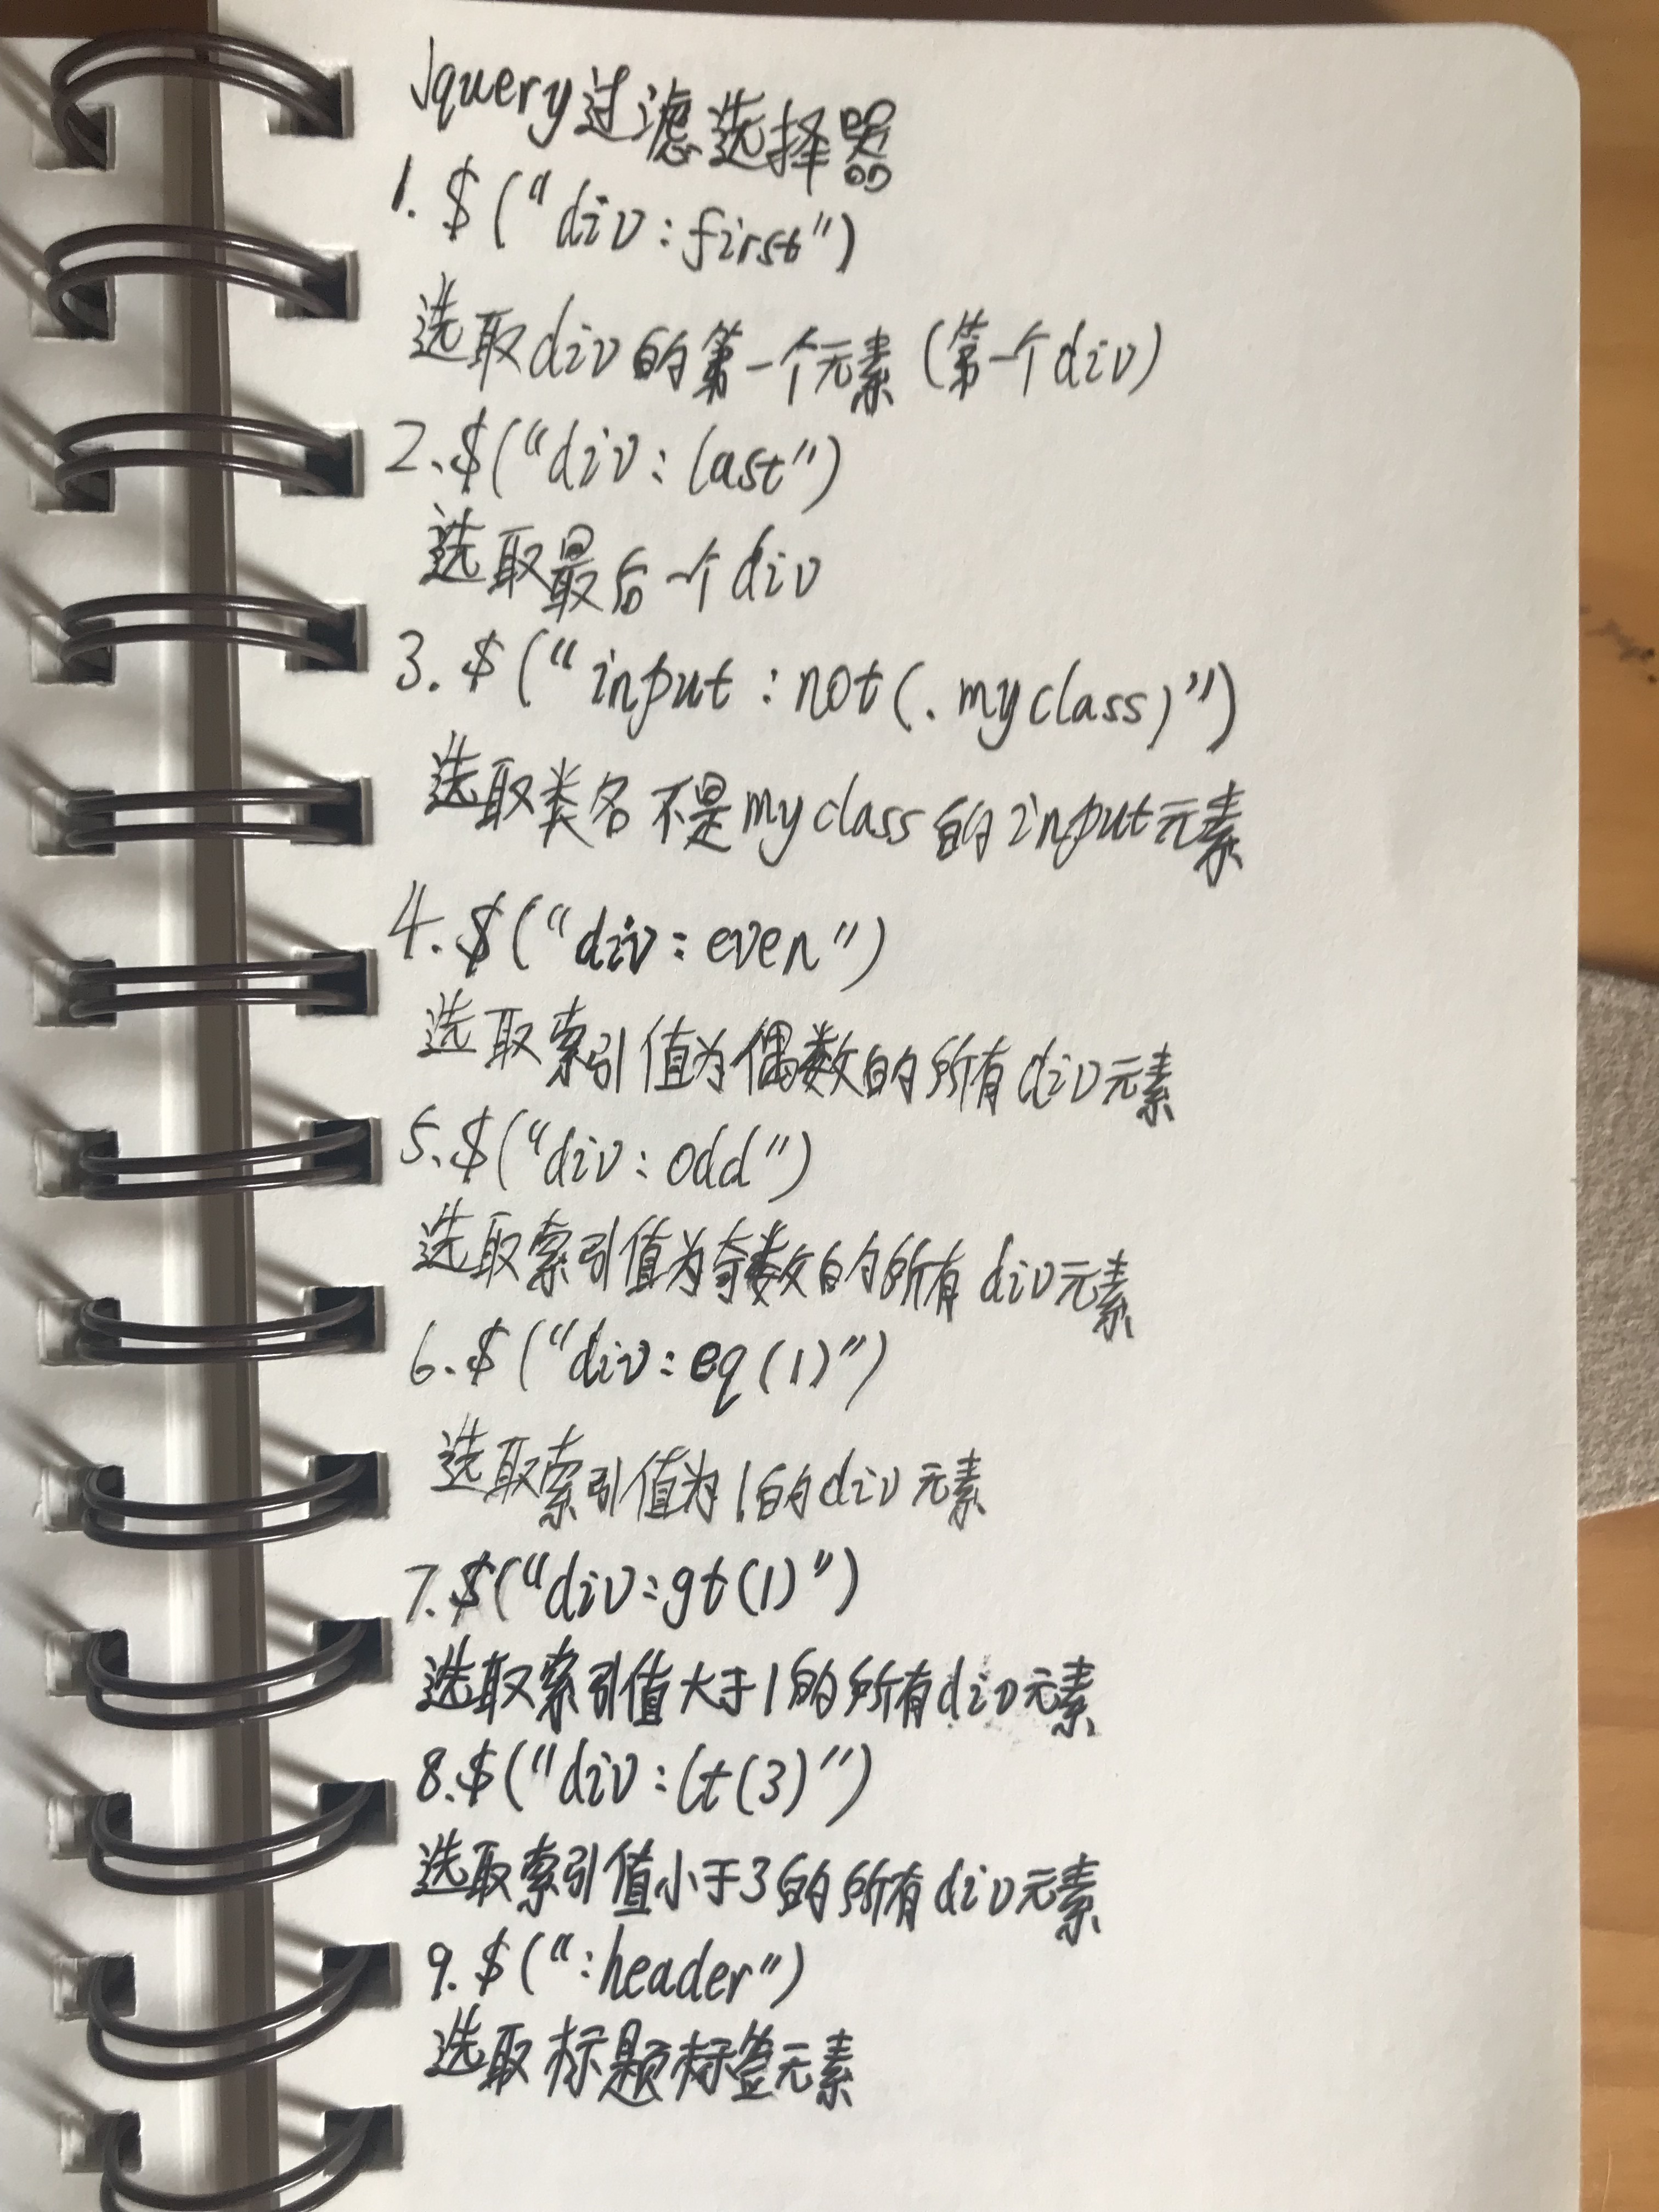 Jquery过滤选择器
1.$("div:first")
选取div的第一个元素(第一个div)
2.$("div:last")
选取最后一个div
3.$("input:not(.myclass)")
选取类名不是myclass的input元素
4.$("div:even")
选取索引值为偶数的所有div元素
5.$("div:odd")
选取索引值为奇数的所有div元素
6.$("div:eq(1)")
选取索引值为1的div元素
7.$("div:gt(1)")
选取索引值大于1的所有div元素
8.$("div:lt(3)")
选取索引值小于3的所有div元素
9.$(":header")
选取标题标签元素